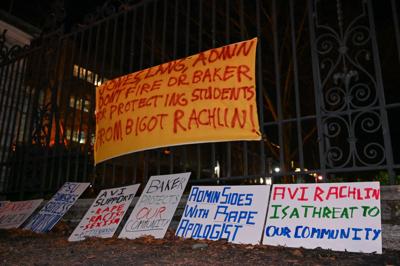 JONES, LANG, ADMIN
DON'T FIRE DR. BAKER
FOR PROTECTING STUDENTS
FROM BIGOT RACHLIN!
AVI
SUPPORT
RAPE
RACISM
SEXISM
BAKER
PROTECTS
OUR
COMMUNITY
ADMIN SIDES
WITH RAPE
APOLOGIST
AVI RACHLIN
IS A THREAT TO
OUR COMMUNITY